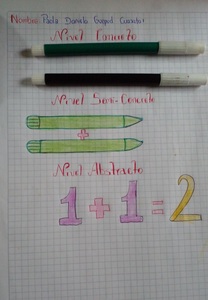 Nombre: Paula Daniela
Nivel Concreto
Nivel Semi-Concreto
+
Nivel Abstracto
1 + 1 = 2